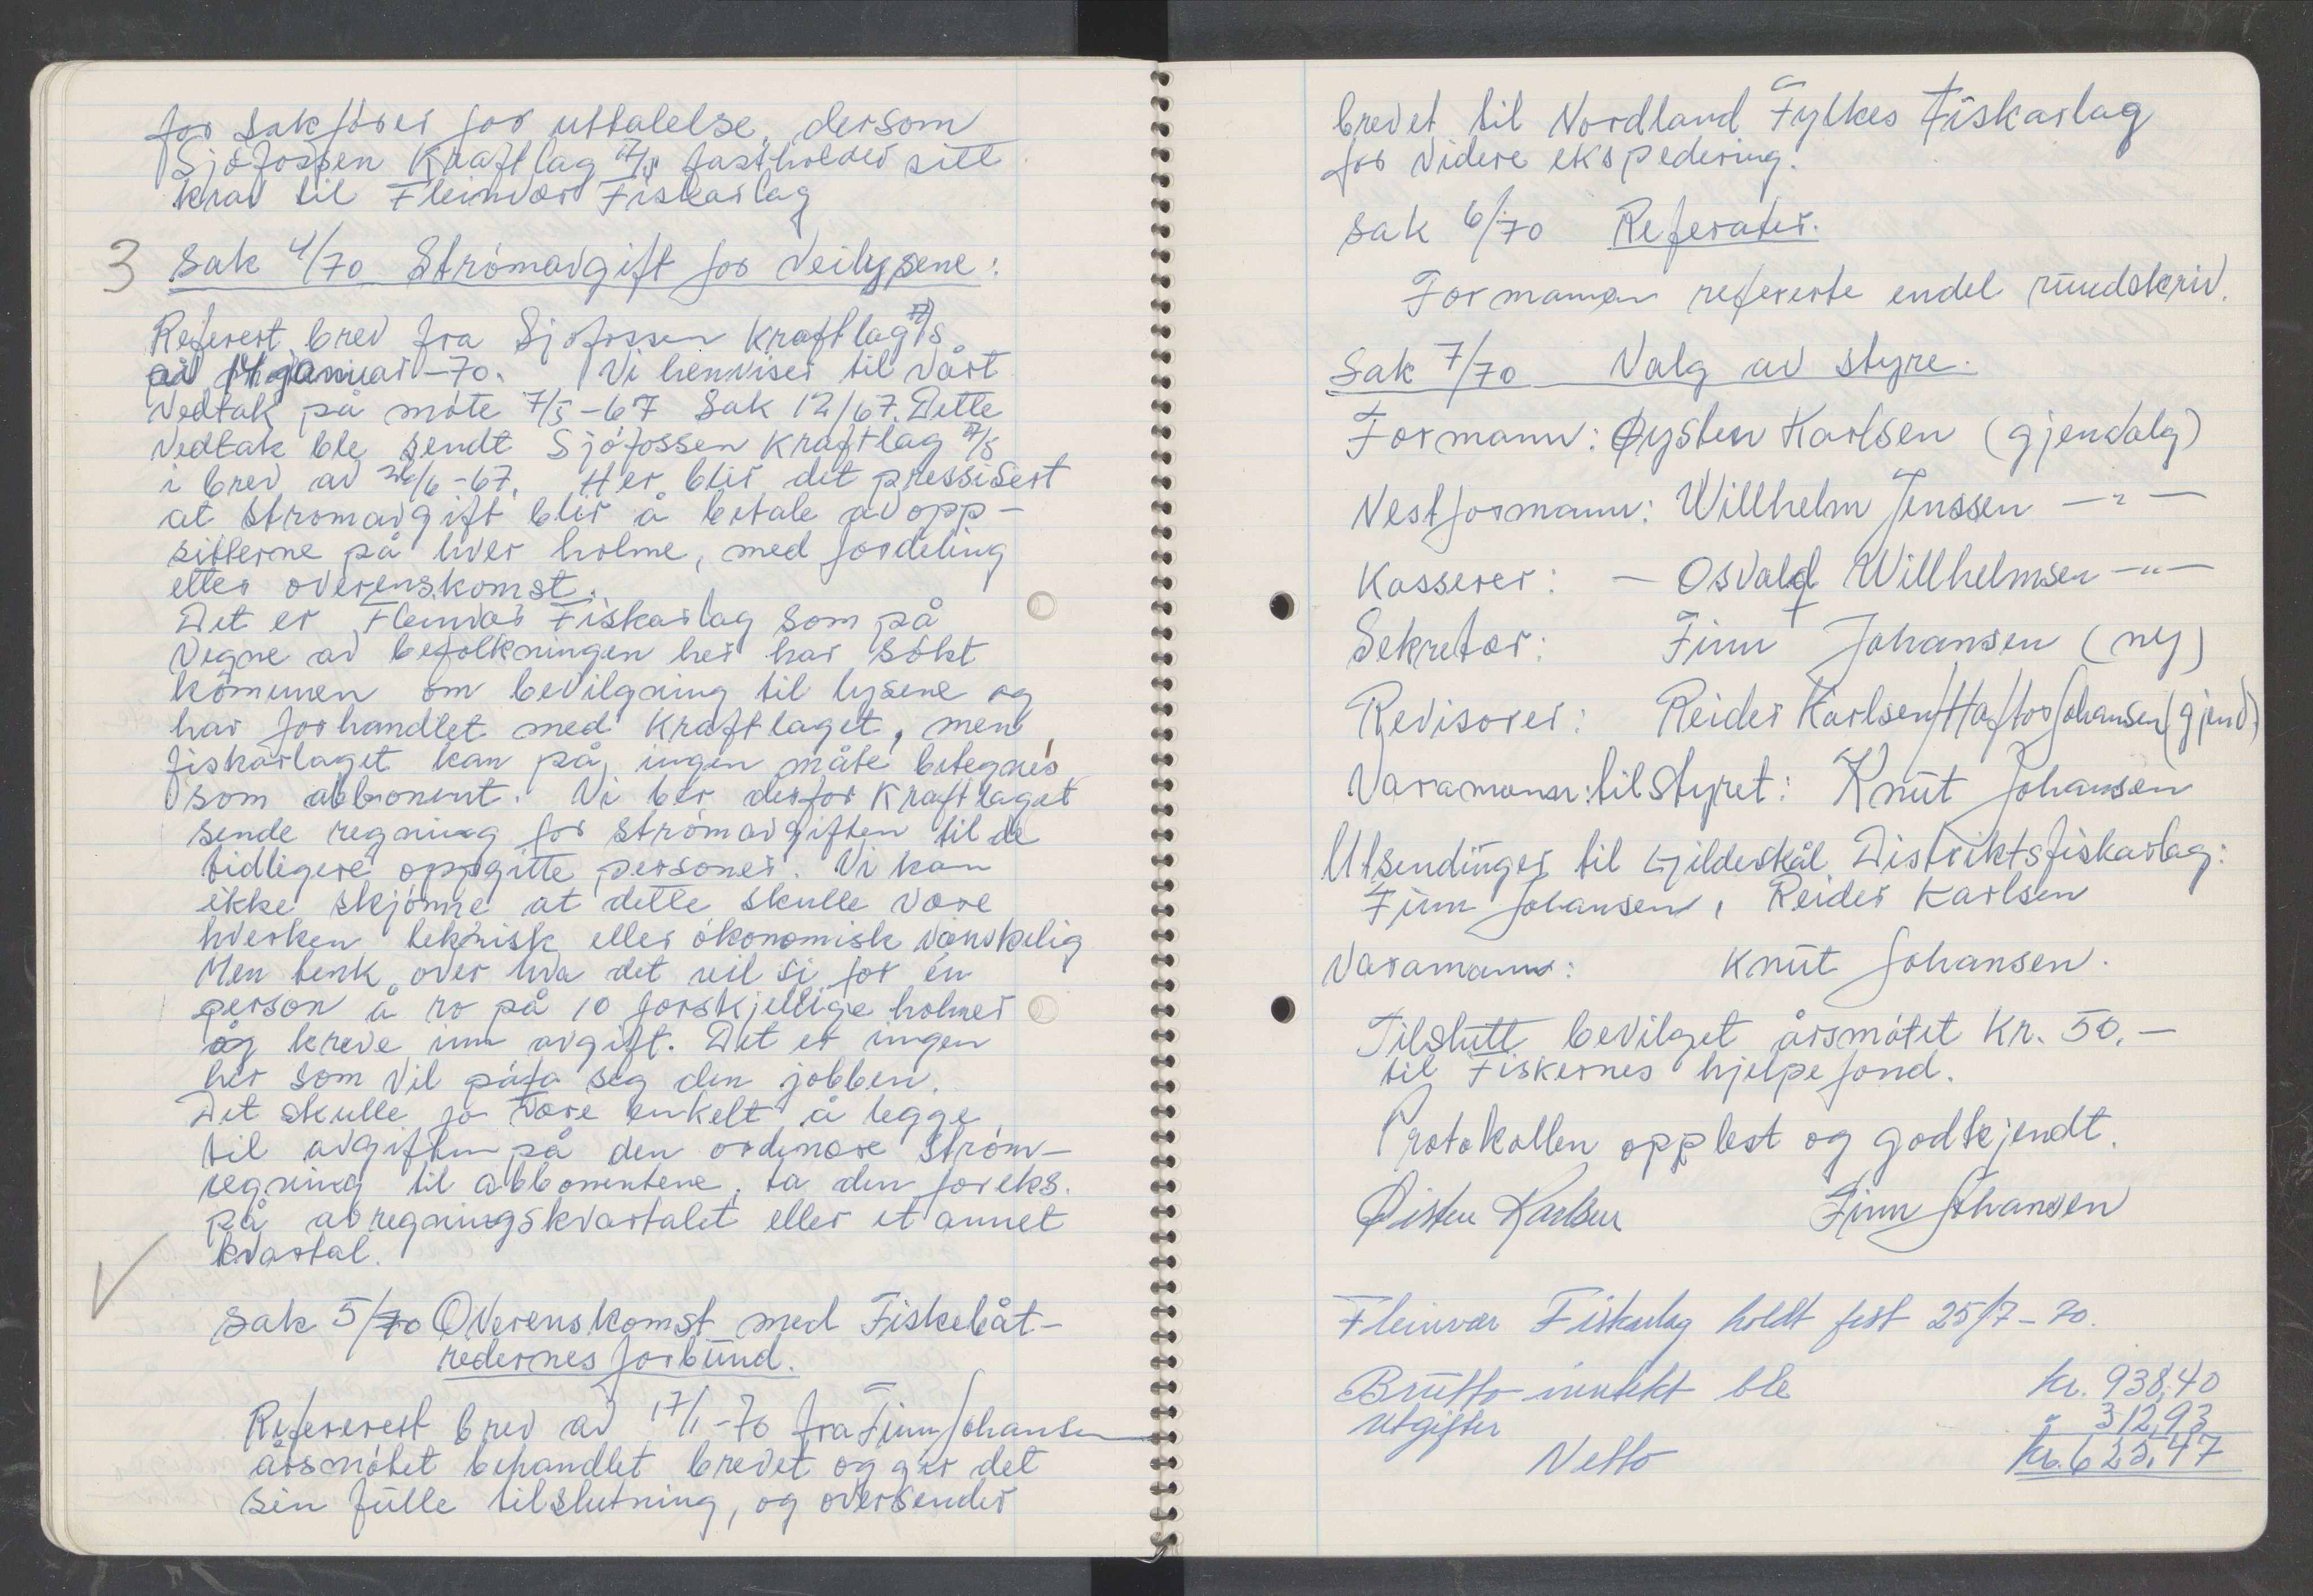 for sakfører for uttalelse, dersom
Sjøfossen Kraftlag A/S fastholder sitt
krav til Fleinvær Fiskarlag
3 Sak 4/70 Strømavgift for veilysene:
Referert brev fra Sjøfossen Kraftlag A/S
av 14 januar -70. Vi henviser til vårt
vedtak på møte 7/5-67 Sak 12/67. Dette
vedtak ble sendt Sjøfossen Kraftlag A/S
i brev av 26/6-67. Her blir det pressisert
at strømavgift blir å betale av opp-
sitterne på hver holme, med fordeling
etter overenskomst.
Det er Fleinvær Fiskarlag som på
vegne av befolkningen her har søkt
kommunen om bevilgning til lysene og
har forhandlet med kraftlaget, men
fiskarlaget kan på ingen måte betegnes
som abbonent. Vi ber derfor kraftlaget
sende regning for strømavgiften til de
tidligere oppgitte personer. Vi kan
ikke skjønne at dette skulle være
hverken teknisk eller økonomisk vanskelig
Men tenk over hva det vil si for én
person å ro på 10 forskjellige holmer
og kreve inn avgift. Det er ingen
her som vil påta seg den jobben.
Det skulle jo være enkelt å legge
til avgiften på den ordinære strøm-
regning til abbonentene, ta den foreks.
på avregningskvartalet eller et annet
kvartal.
Sak 5/70 Overenskomst med Fiskebåt-
redernes forbund.
Refererest brev av 17/1-70 fra Finn Johansen
årsmøtet behandlet brevet og gir det
sin fulle tilslutning, og oversender
brevet til Nordland Fylkes Fiskarlag
for videre ekspedering.
sak 6/70 Referater.
Formannen refererte endel rundskriv.
Sak 7/70 Valg av styre.
Formann: Øysten Karlsen (gjenvalg)
Nestformann: Willhelm Jenssen — " —
Kasserer: — Osvald Willhelmsen — " —
Sekretær: Finn Johansen (ny)
Revisorer: Reider Karlsen/Haftor Johansen (gjenv.)
Varamann: til styret: Knut Johansen
Utsendinger til Gildeskål Distriktsfiskarlag:
Finn Johansen, Reider Karlsen
Varamann: Knut Johansen.
Tilslutt bevilget årsmøtet Kr. 50.—
til Fiskernes hjelpefond.
Protokollen opplest og godkjendt.
Øisten Karlsen Finn Johansen
Fleinvær Fiskarlag holdt fest 25/7-70.
Brutto inntekt ble kr. 938,40
Utgifter " 312,93
Netto kr. 625,47